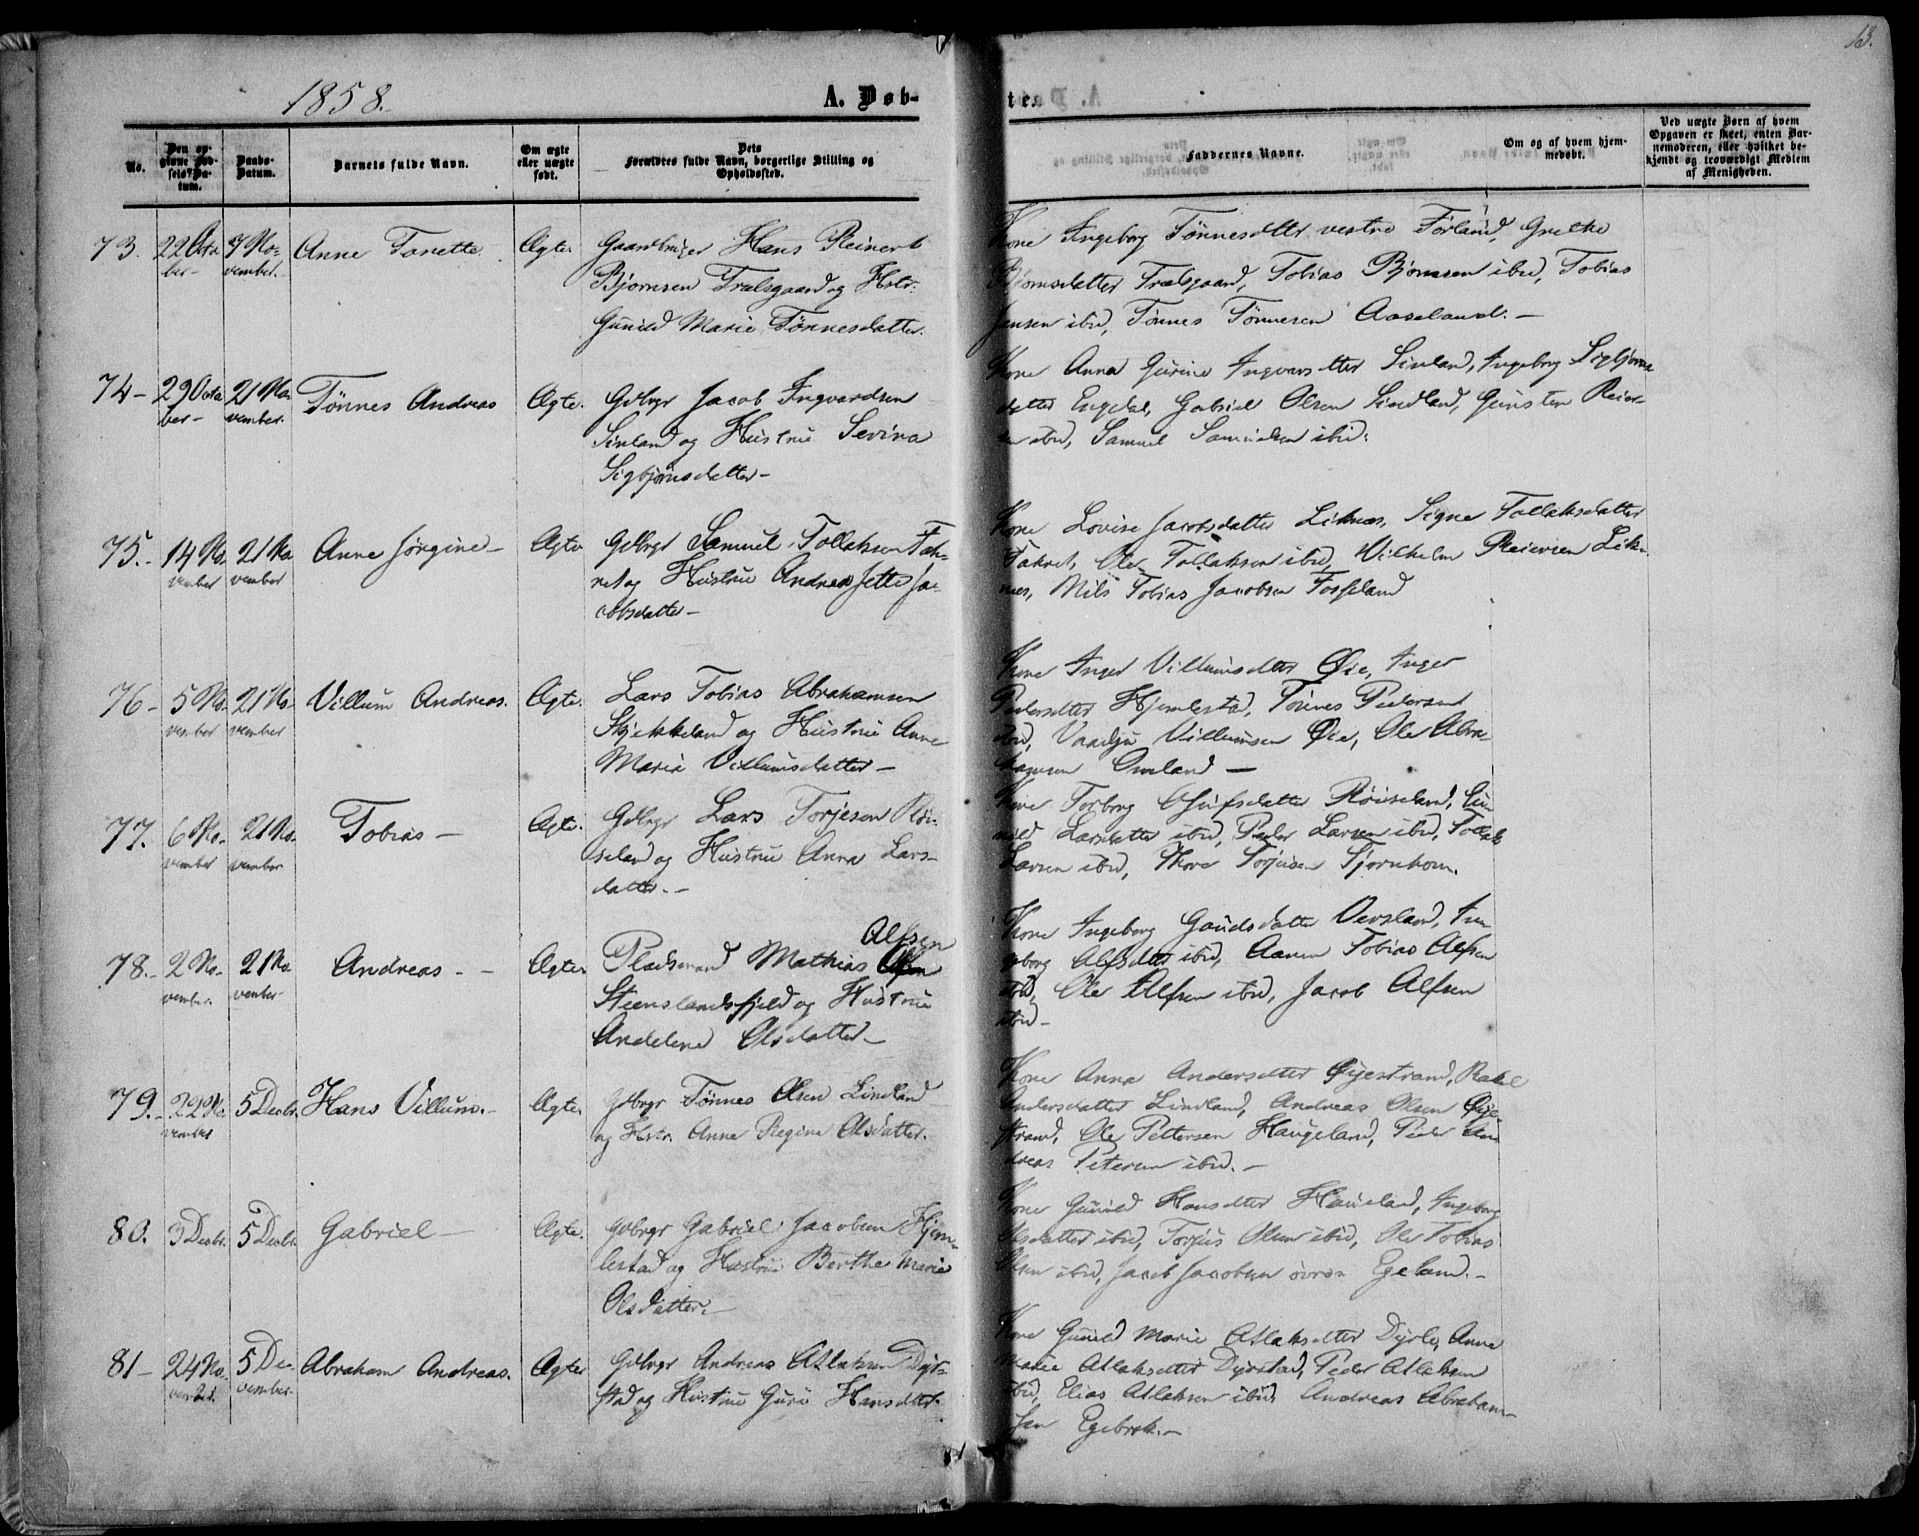 13.
1858.
A. Døb-
te.
No.
Den op-
givne Fød-
sels-Da-
tum.
Daabs-
Datum.
Barnets fulde Navn.
Om ægte
eller uægte
født.
Dets
Forældres fulde Navn, borgerlige Stilling og
Opholdssted.
Faddernes Navne.
Om og af hvem hjem-
medøbt.
Ved uægte Børn af hvem
Opgaven er skeet, enten Bar-
nemoderen, eller hvilket be-
kjendt og troværdigt Medlem
af Menigheden.
73. 22 Octo 7 No- Anne Tonette. Ægte. Gaardbruger Hans Reinert
ber- vember. Bjørnsen Trælsgaard og Hstr.
Gunild Marie Tønnesdatter.
Kone Ingeborg Tønnesdttr vestre Førland, Grethe
Bjørnsdatter Trælsgaard, Tobias Bjørnsen ibid, Tobias
Jensen ibid, Tønnes Tønnesen Aaseland. -
74- 29 Octo 21 No- Tønnes Andreas Ægte. Gdbrgr Jacob Ingvardsen
ber- vember. Sinland og Hustrue Sevina
Sigbjørnsdatter-
Kone Anna Gurine Ingvarsdtter Sinland, Ingeborg Sigbjørns
datter Engedal, Gabriel Olsen Sindland, Gunsten Reier-
sen ibid, Samuel Samuelsen ibid.
75.- 14 No. 21 No Anne Jørgine- Ægte Gdbrgr Samuel Tollaksen Fak-
vember vember ret og Hustrue Andrea Jette Ja-
cobsdatter-
Kone Lovise Jacobsdatter Liknæs, Signe Tollaksdatter
Fakret, Ole Tollaksen ibid, Vilhelm Reiersen Lik-
næs, Nils Tobias Jacobsen Fosseland
76- 5 No. 21 No. Villum Andreas. Ægte. Lars Tobias Abrahamsen
vember vember Skjekkeland og Hustrue Anne
Maria Villumsdatter-
Kone Inger Villumsdtter Øie, Inger
Pedersdtter Hjemlestad, Tønnes Pedersen
ibid, Vaadju Villumsen Øie, Ole Abra-
hamsen Omland -
77. 6 No. 21 No. Tobias- Ægte. Gdbrgr Lars Torjesen Røi-
vember vember seland og Hustrue Anna Lars-
datter.-
Kone Torborg Ohufsdatter Røiseland, Gu-
nild Larsdatter ibid, Peder Larsen ibid, Tollak
Larsen ibid, Thore Torjusen Tjornhom.
78.- 2 No. 21 No. Andreas - - Ægte Pladsmand Mathias Alfsen
vember. vember Steenslandsfjeld og Hustrue
Andelene Olsdatter-
Kone Ingeborg Gaudsdatter Versland, In-
geborg Alfsdtter ibid, Aanen Tobias Alfsen
ibid, Ole Alfsen ibid, Jacob Alfsen
ibid-
79.- 22 No. 5 Decbr. Hans Villum.- Ægte. Gdbrgr Tønnes Olsen Lindland
vember og Hstr. Anne Regine Olsdatter.
Kone Anna Andersdtter Øyestrand, Rakel
Andersdatter Lindland, Andreas Olsen Øie-
strand, Ole Pettersen Haugeland, Peder An-
dreas Petersen ibid.-
80. 3 Decbr. 5 Decbr. Gabriel- Ægte. Gdbrgr Gabriel Jacobsen Hjem-
lestad og Hustrue Berthe Marie
Olsdatter.-
Kone Gunild Hansdtter Haugland, Ingeborg
Olsdatter ibid, Torjus Olsen ibid, Ole Tobias
Olsen ibid, Jacob Jacobsen øvre Egeland.-
81- 24 No. 5 De- Abraham Andreas. Ægte Gdbrgr Andreas Atlaksen Dyr-
vember. vember. stad og Hustrue Guro Hansdtter.
Kone Gunild Marie Atlaksdtter Dyrli, Anne
Marie Atlaksdtter Dyrstad, Peder Atlaksen
ibid, Elias Atlaksen ibid, Andreas Abraham-
sen Egebrok.-